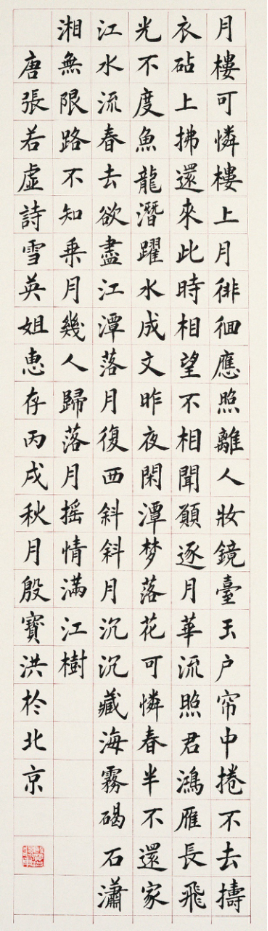 月樓可憐樓上月徘徊應照離人妝鏡臺玉户帘中捲不去擣
衣砧上拂還來此時相望不相聞願逐月華流照君鴻雁長飛
光不度魚龍潛躍水成文昨夜閑潭梦落花可憐春半不還家
江水流春去欲盡江潭落月復西斜斜月沉沉藏海霧碣石瀟
湘無限路不知乘月幾人歸落月摇情滿江樹
唐張若虛詩雪英姐惠存丙戌秋月殷寶洪於北京